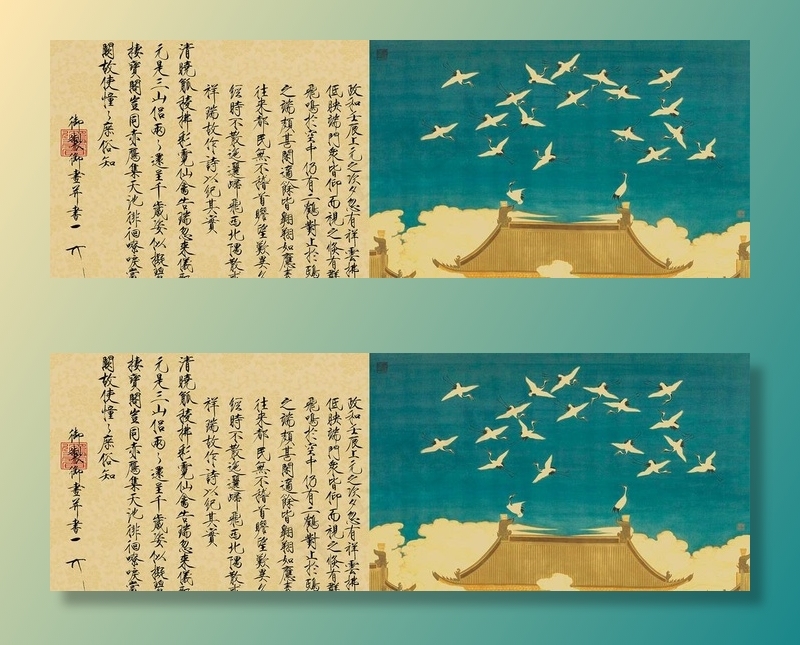 政和壬辰上元之次夕忽有祥雲拂
低映端門眾皆仰而視之倏有群
飛鳴於空中仍有二鶴對止於鴟
之端頗甚閑適餘皆翱翔如應奏
往來都民無不稽首瞻望歎異久
經時不散迤邐歸飛西北隅散
祥瑞故作詩以紀其實
清曉觚稜拂彩霓仙禽告瑞忽來儀
元是三山侶兩〻還呈千歲姿似擬碧
棲寶閣豈同赤鴈集天池徘徊嘹唳當
闕故使憧〻庶俗知
御製御畫并書
政和壬辰上元之次夕忽有祥雲拂
低映端門眾皆仰而視之倏有群
飛鳴於空中仍有二鶴對止於鴟
之端頗甚閑適餘皆翱翔如應奏
往來都民無不稽首瞻望歎異久
經時不散迤邐歸飛西北隅散
祥瑞故作詩以紀其實
清曉觚稜拂彩霓仙禽告瑞忽來儀
元是三山侶兩〻還呈千歲姿似擬碧
棲寶閣豈同赤鴈集天池徘徊嘹唳當
闕故使憧〻庶俗知
御製御畫并書